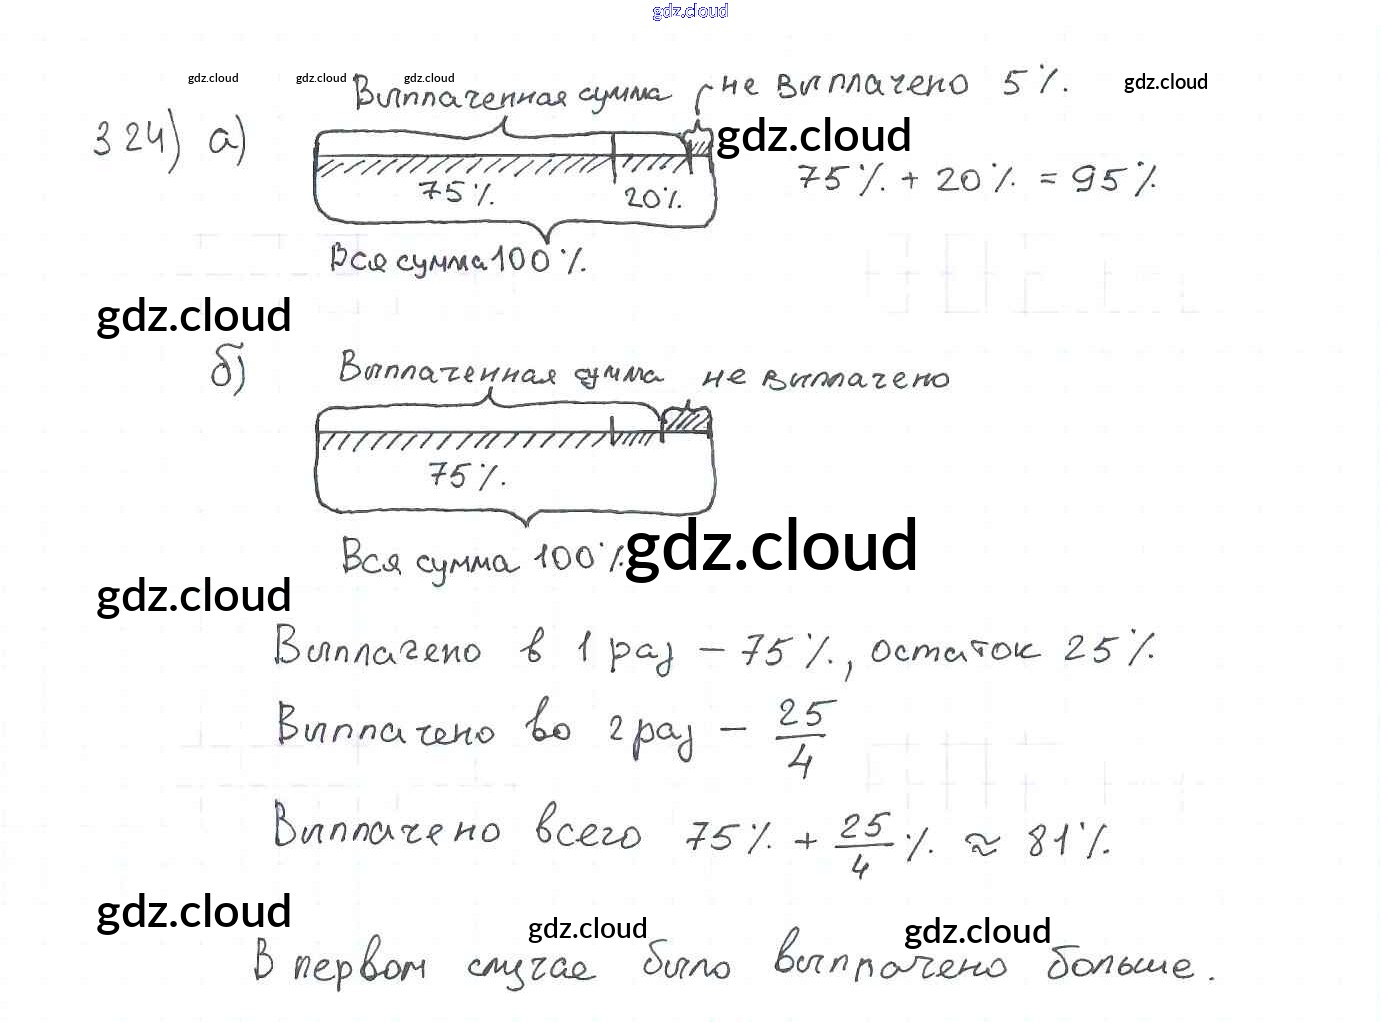 gdz.cloud
gdz.cloud gdz.cloud gdz.cloud
Выплаченная сумма не выплачено 5%. gdz.cloud
324) а) gdz.cloud
75% + 20% = 95%
75% 20%
Вся сумма 100%.
gdz.cloud
б) Выплаченная сумма не выплачено
75%.
Вся сумма 100% gdz.cloud
gdz.cloud
Выплачено в 1 раз – 75%, остаток 25%
Выплачено во 2 раз – 25/4
Выплачено всего 75% + 25/4 % ≈ 81%.
gdz.cloud gdz.cloud gdz.cloud
В первом случае было выплачено больше.